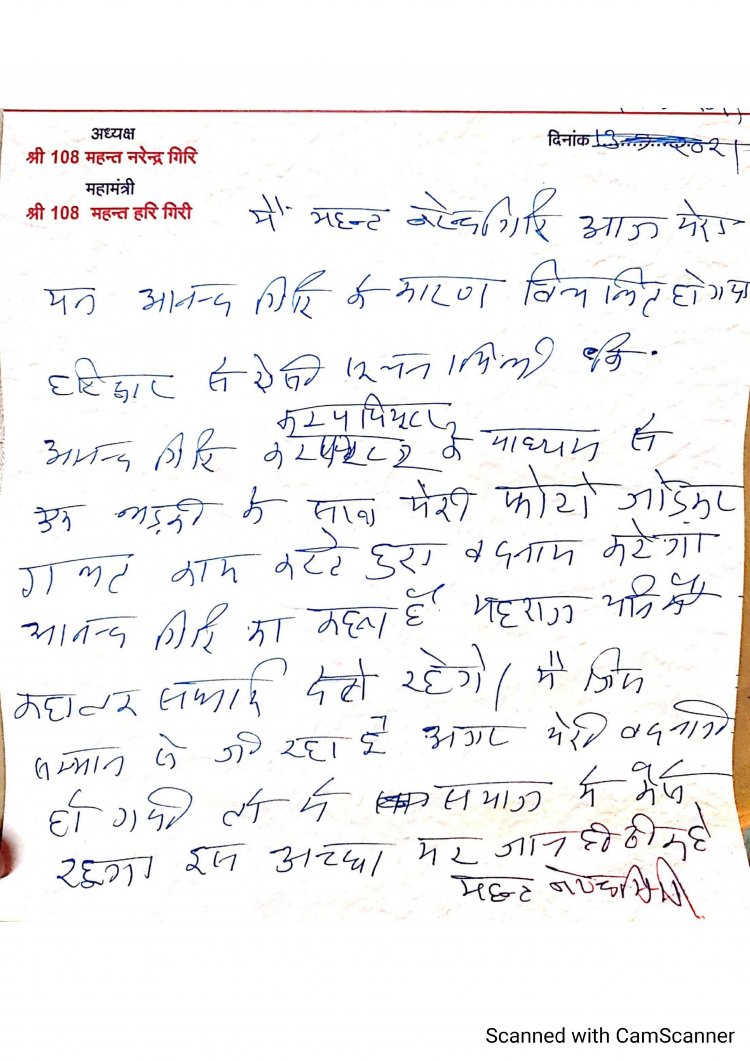 अध्यक्ष
श्री 108 महन्त नरेन्द्र गिरि
महामंत्री
श्री 108 महन्त हरि गिरी
दिनांक 13 2021
मैं महन्त नरेन्द्र गिरि आज मेरा
मन आनन्द गिरि के कारण विचलित हो गया
हरिद्वार से ऐसी सूचना मिली कि
कम्प्यूटर
आनन्द गिरि के माध्यम से
एक लड़की के साथ मेरी फोटो जोड़कर
गलत काम करते हुए बदनाम करेगा
आनन्द गिरि का कहना है महराज यानि मैं
कहा तक सफाई देते रहेगे। मैं जिस
सम्मान से जी रहा हूँ अगर मेरी बदनामी
हो गयी तो मैं समाज में कैसे
रहूगा इस अच्छा मर जाना ही ठीक है
महन्त नरेन्द्र गिरि
Scanned with CamScanner